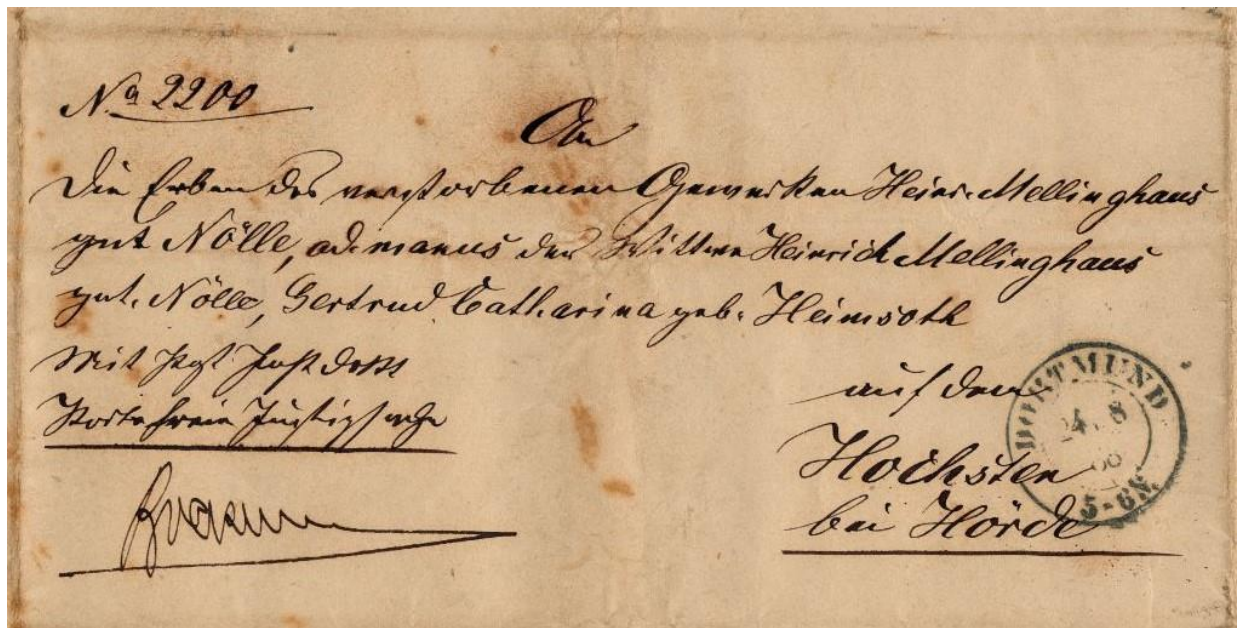 No 2200
An
Die Erben des verstorbenen Gewerken Heinr. Mellinghaus
gnt Nölle, ad manus der Wittwe Heinrich Mellinghaus
gnt. Nölle, Gertrud Catharina geb. Heimsoth
Mit
Portofreie Justizsache
auf dem
Höchsten
bei Hörde
DORTMUND
24 8
5-6N.